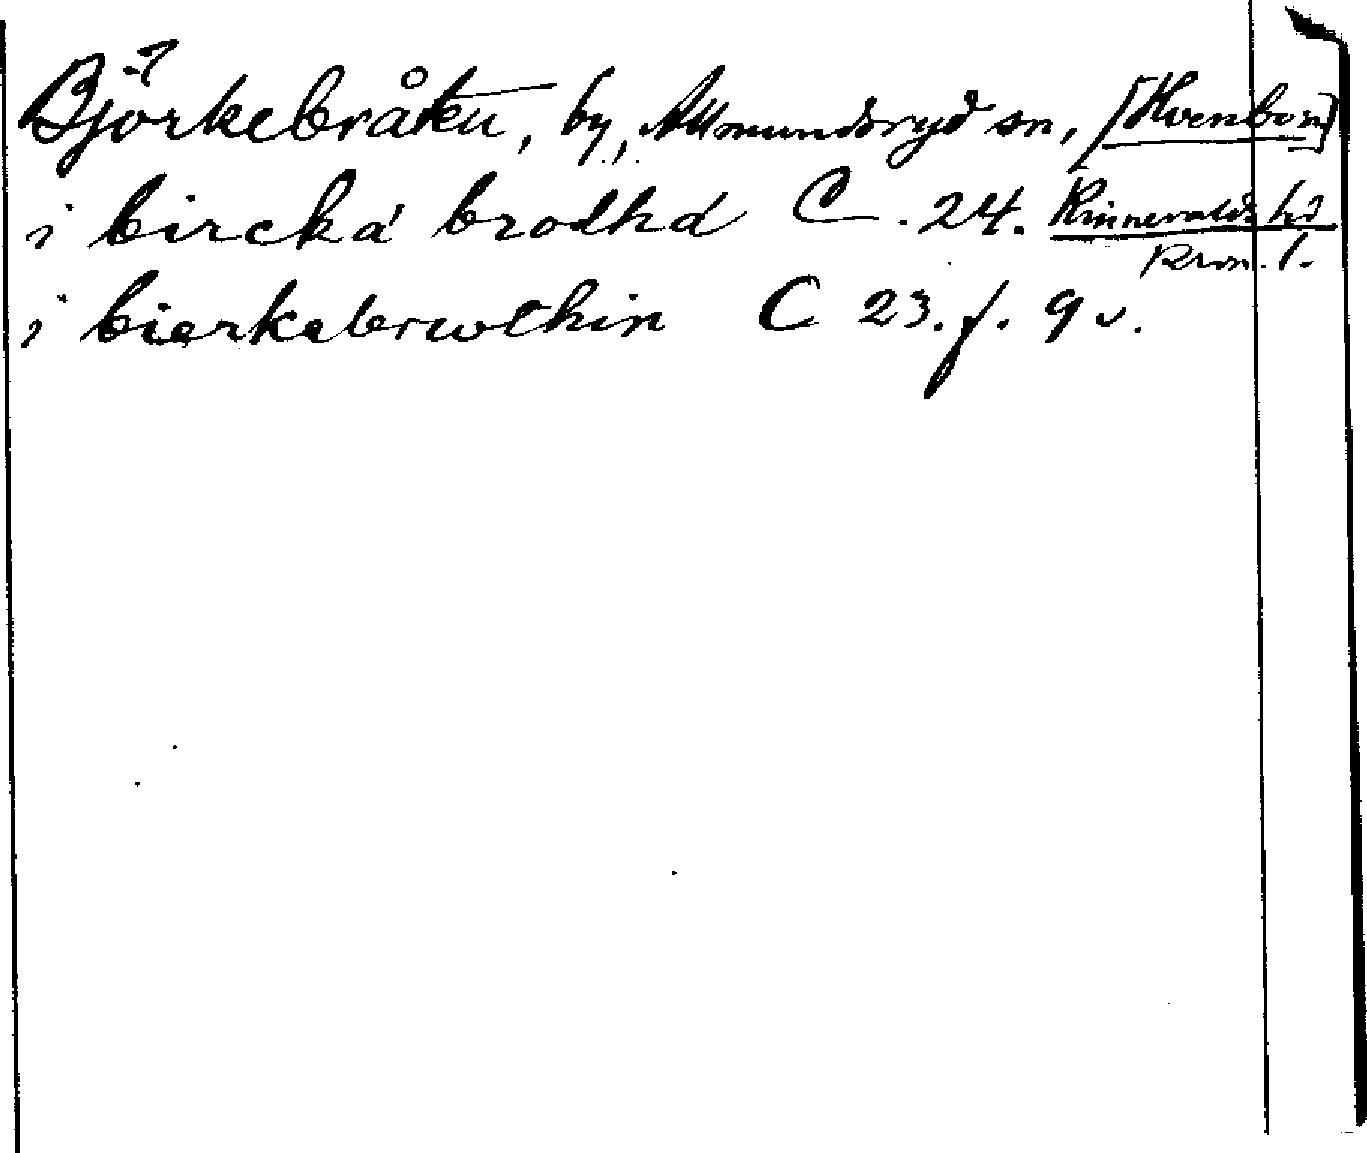 Björkebråten, by, Almundsryd sn, [Hvenbom]
i bircka brodha C. 24. Kinnevalds hd
Kron. l.
i bierkebrwthin C 23. f. 9 v.